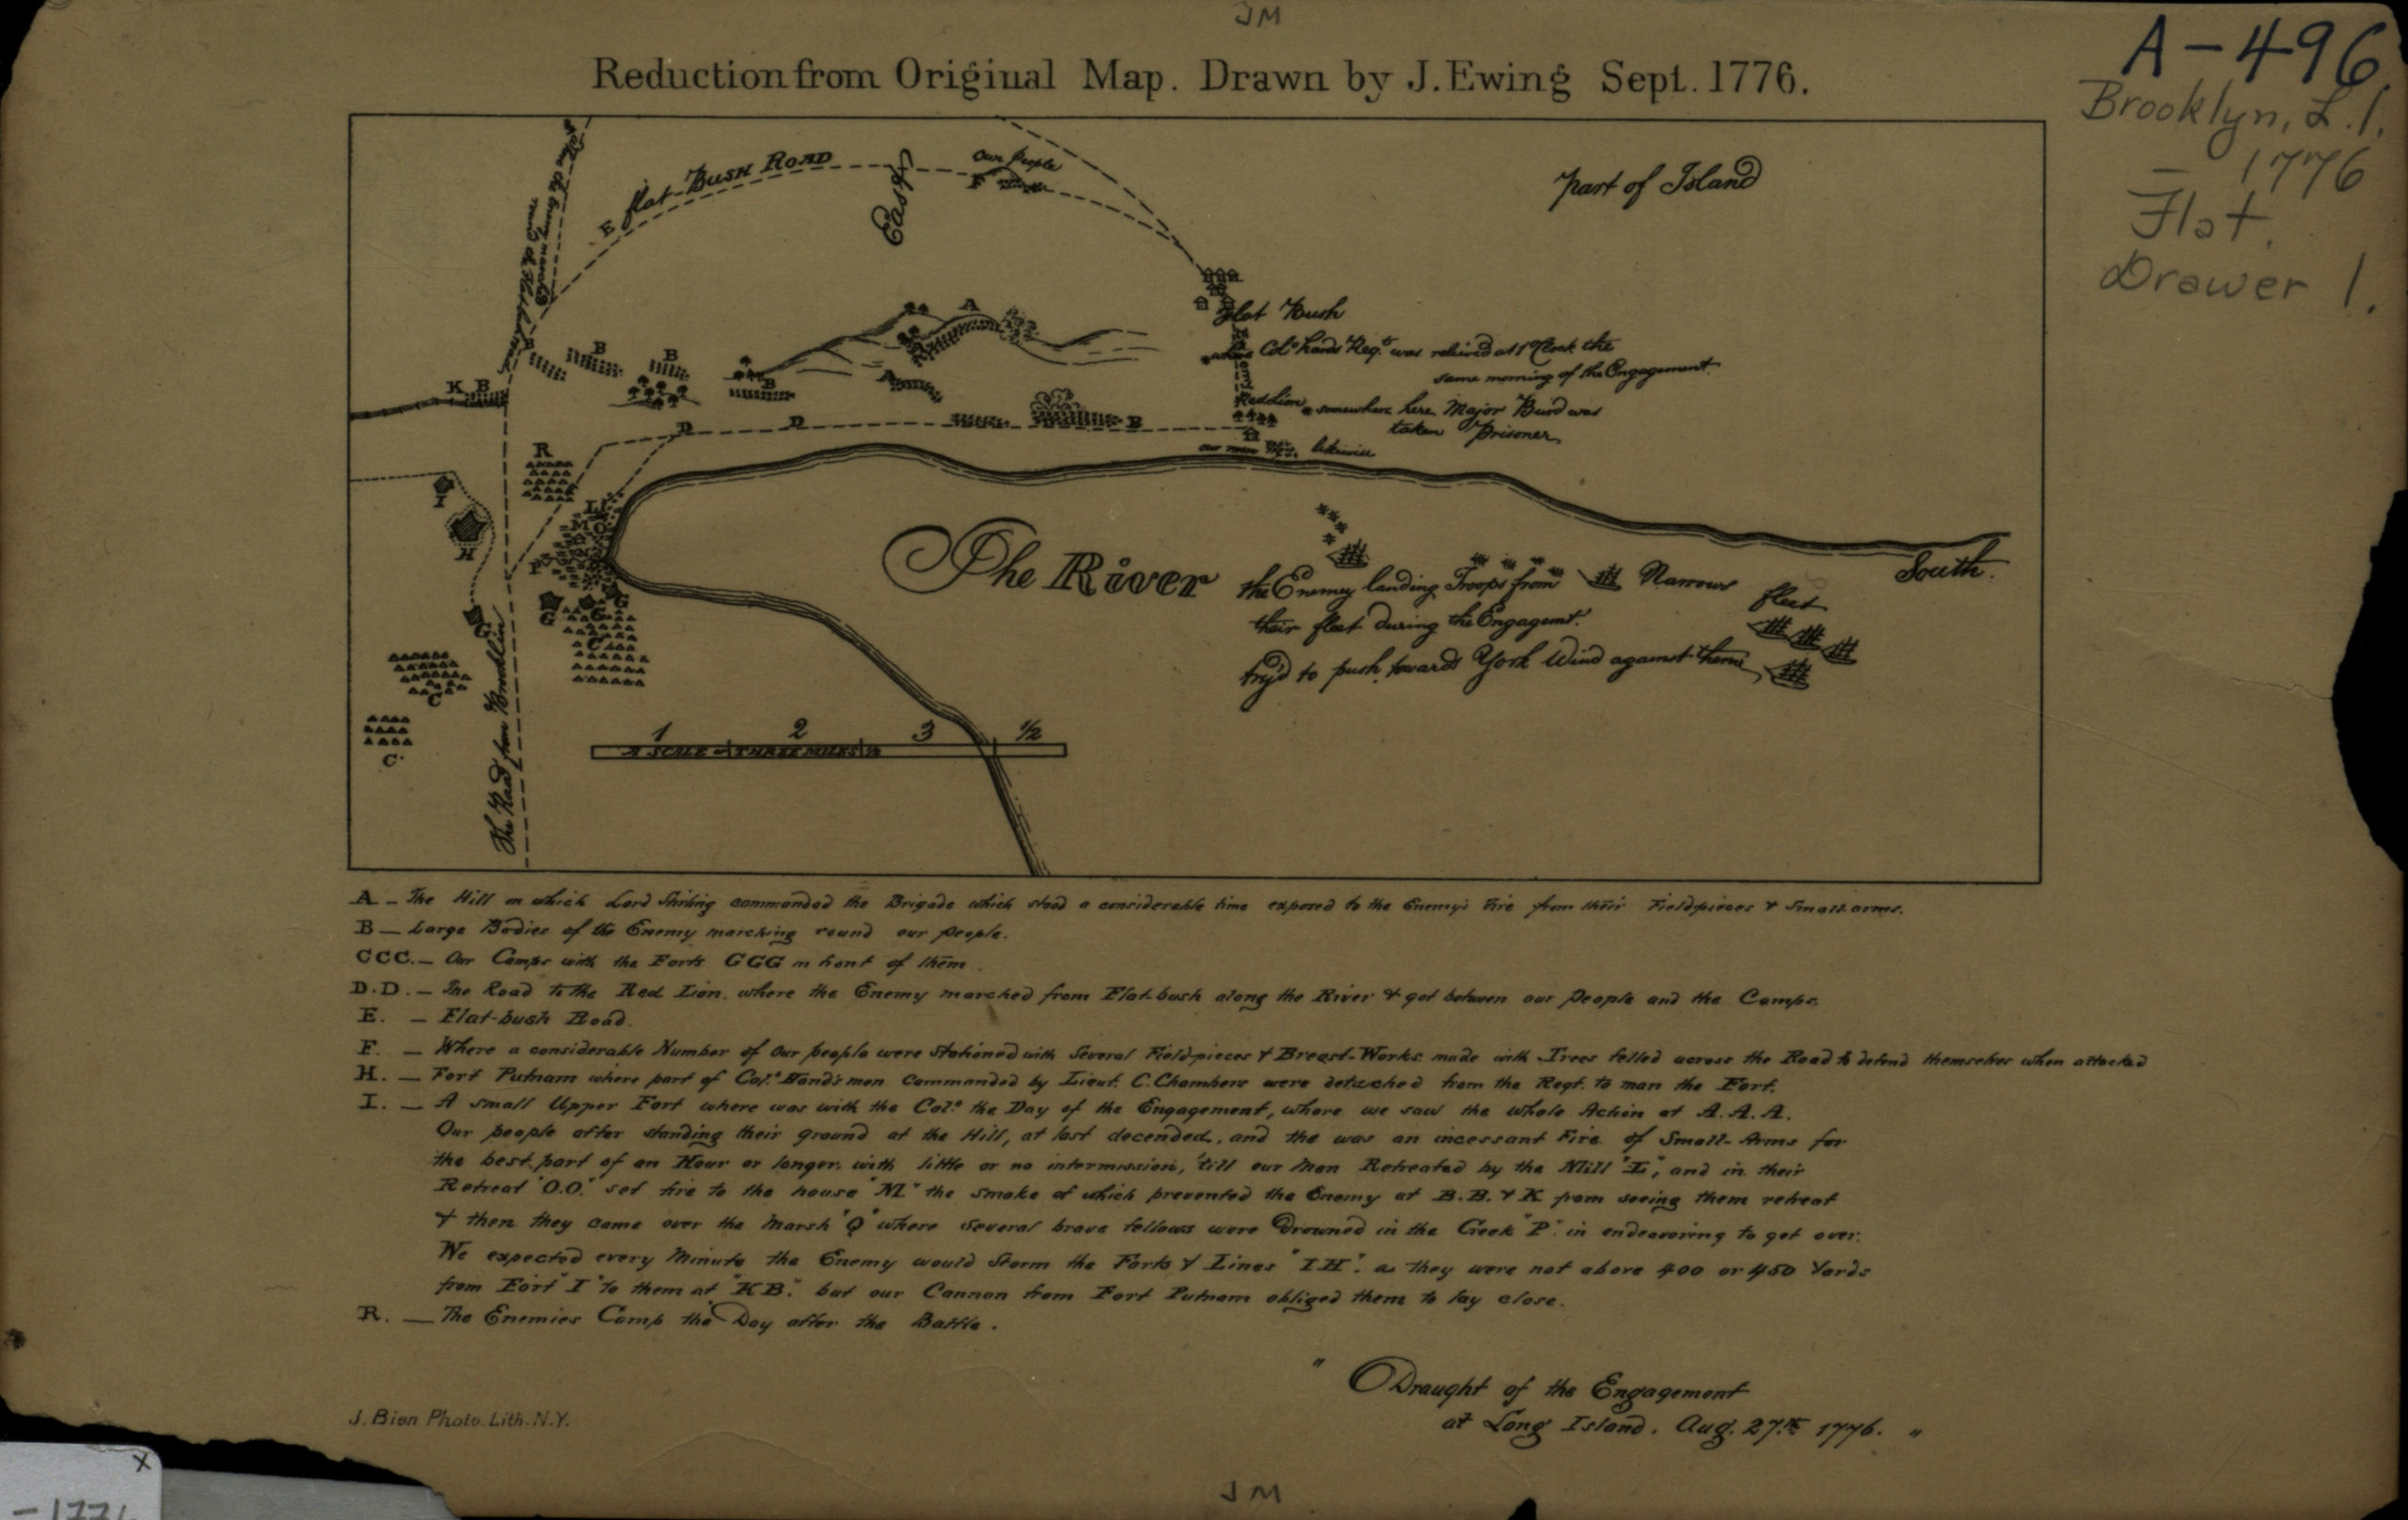 JM
Reduction from Original Map. Drawn by J. Ewing Sept. 1776.
A-496
Brooklyn, L.I.
- 1776
Flat.
Drawer 1.
Flat-Bush Road
E
East
Our People
F
Part of Island
A
B
B
B
B
K B
Flat Bush
where Colº hands Regt was relieved at 1 oClock the
same morning of the Engagement
Red Lion
somewhere here Major Burd was
taken Prisoner
our men likewise
D
D
B
R
I
H
L
M O
P
G
G
G
G
C
C
C
The Road from Brooklin
The River
the Enemy landing Troops from
their fleet during the Engagemt.
try'd to push towards York Wind against them
Narrows
fleet
South.
1 2 3 ½
A SCALE of THREE MILES ½
A - The Hill on which Lord Stirling commanded the Brigade which stood a considerable time exposed to the Enemy's Fire from their Fieldpieces & Small-arms.
B - Large Bodies of the Enemy marching round our People.
CCC. - Our Camps with the Forts GGG in front of them.
D.D. - The Road to the Red Lion, where the Enemy marched from Flat-bush along the River & got between our People and the Camps.
E. - Flat-bush Road.
F. - Where a considerable Number of our people were Stationed with Several Fieldpieces & Breast-Works made with Trees felled across the Road to defend themselves when attacked
H. - Fort Putnam where part of Col.º Hand's men Commanded by Lieut. C. Chambers were detached from the Regt. to man the Fort.
I. - A small Upper Fort where was with the Col.º the Day of the Engagement, where we saw the whole Action at A.A.A.
Our people after standing their ground at the Hill, at last decended, and the was an incessant Fire of Small-Arms for
the best part of an Hour or longer, with little or no intermission, 'till our Men Retreated by the Mill "L", and in their
Retreat "O.O." set fire to the house "M." the smoke of which prevented the Enemy at B.B. & K from seeing them retreat
& then they came over the Marsh "Q" where several brave fellows were Drowned in the Creek "P." in endeavoring to get over.
We expected every Minute the Enemy would Storm the Forts & Lines "I H". as they were not above 400 or 450 Yards
from Fort "I" to them at "K B." but our Cannon from Fort Putnam obliged them to lay close.
R. - The Enemies Camp the Day after the Battle.
" Draught of the Engagement
at Long Island. Aug. 27th 1776. "
J. Bien Photo. Lith. N.Y.
JM
x